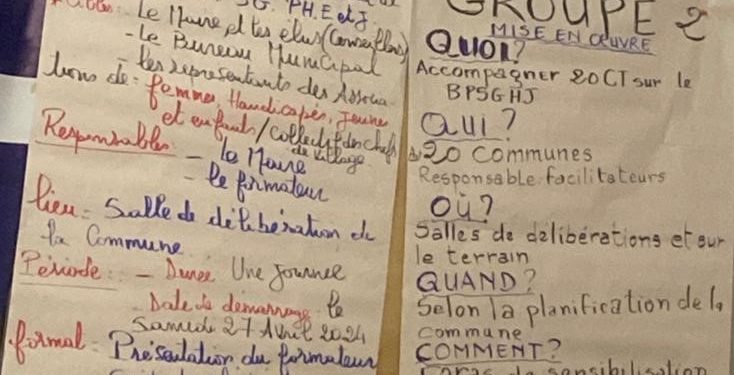 PH.E et J
Le Maire et les élus (Conseillers)
- Le Bureau Municipal
- les représentants des Associa
tions de : femmes, Handicapés, Jeunes
et enfants / collectif des chefs
de village
Responsables - le Maire
- le formateur
Lieu - Salle de délibération de
la Commune
Période : - Durée Une Journée
Date de démarrage le
Samedi 27 Avril 2024
format - Présentation du formateur
GROUPE 2
MISE EN ŒUVRE
QUOI?
Accompagner 20 CT sur le
BPSGHJ
QUI?
20 Communes
Responsable facilitateurs
OÙ?
Salles de délibérations et sur
le terrain
QUAND?
Selon la planification de la
commune
COMMENT?
de sensibilisation